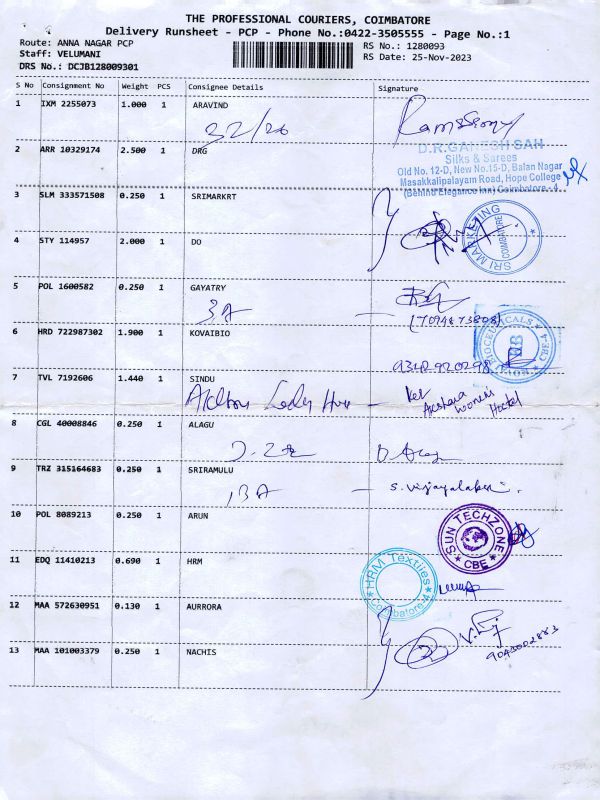 THE PROFESSIONAL COURIERS, COIMBATORE
Delivery Runsheet - PCP - Phone No.:0422-3505555 - Page No.:1
Route: ANNA NAGAR PCP RS No.: 1280093
Staff: VELUMANI RS Date: 25-Nov-2023
DRS No.: DCJB128009301
S No Consignment No Weight PCS Consignee Details Signature
1 IXM 2255073 1.000 1 ARAVIND
32/26
2 ARR 10329174 2.500 1 DRG
D.R.GANESH SAH
Silks & Sarees
Old No. 12-D, New No.15-D, Balan Nagar
Masakkalipalayam Road, Hope College
(Behind Elegance Inn) Coimbatore - 4
3 SLM 333571508 0.250 1 SRIMARKRT
SRI MARKETING COIMBATORE
4 STY 114957 2.000 1 DO
5 POL 1600582 0.250 1 GAYATRY
3A
6 HRD 722987302 1.900 1 KOVAIBIO
CBE-4
7 TVL 7192606 1.440 1 SINDU
Akshara women's Hostel
8 CGL 40008846 0.250 1 ALAGU
9 TRZ 315164683 0.250 1 SRIRAMULU
13A - S. Vijayalakshmi
10 POL 8089213 0.250 1 ARUN
SUN TECHZONE CBE
11 EDQ 11410213 0.690 1 HRM
HRM Textiles Coimbatore-4
12 MAA 572630951 0.130 1 AURRORA
13 MAA 101003379 0.250 1 NACHIS